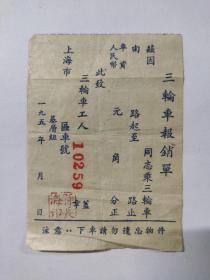 三輪車報銷單
茲因　同志乘三輪車
由　路起至　路止
車資人民幣　元　角　分正
此致
三輪車工人　蓋章
上海市　區車號 10259
基層組
一九五　年　月　日
注意：下車請勿遺忘物件